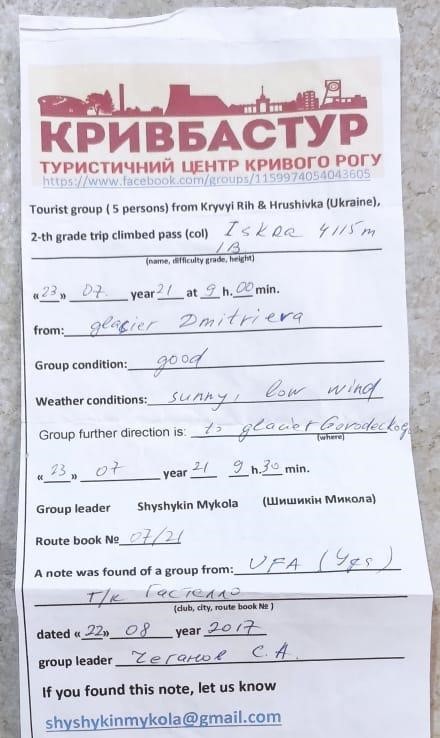 КРИВБАСТУР
ТУРИСТИЧНИЙ ЦЕНТР КРИВОГО РОГУ
https://www.facebook.com/groups/1159974054043605
Tourist group ( 5 persons) from Kryvyi Rih & Hrushivka (Ukraine),
2-th grade trip climbed pass (col) Iskra 4115m
1B
(name, difficulty grade, height)
«23» 07 year 21 at 9 h. 00 min.
from: glacier Dmitrieva
Group condition: good
Weather conditions: sunny, low wind
Group further direction is: to glacier Gorodeckogo
(where)
«23» 07 year 21 9 h. 30 min.
Group leader Shyshykin Mykola (Шишикін Микола)
Route book № 07/21
A note was found of a group from: UFA (Уфа)
Т/к Гастелло
(club, city, route book № )
dated «22» 08 year 2017
group leader Чеганов С.А.
If you found this note, let us know
shyshykinmykola@gmail.com